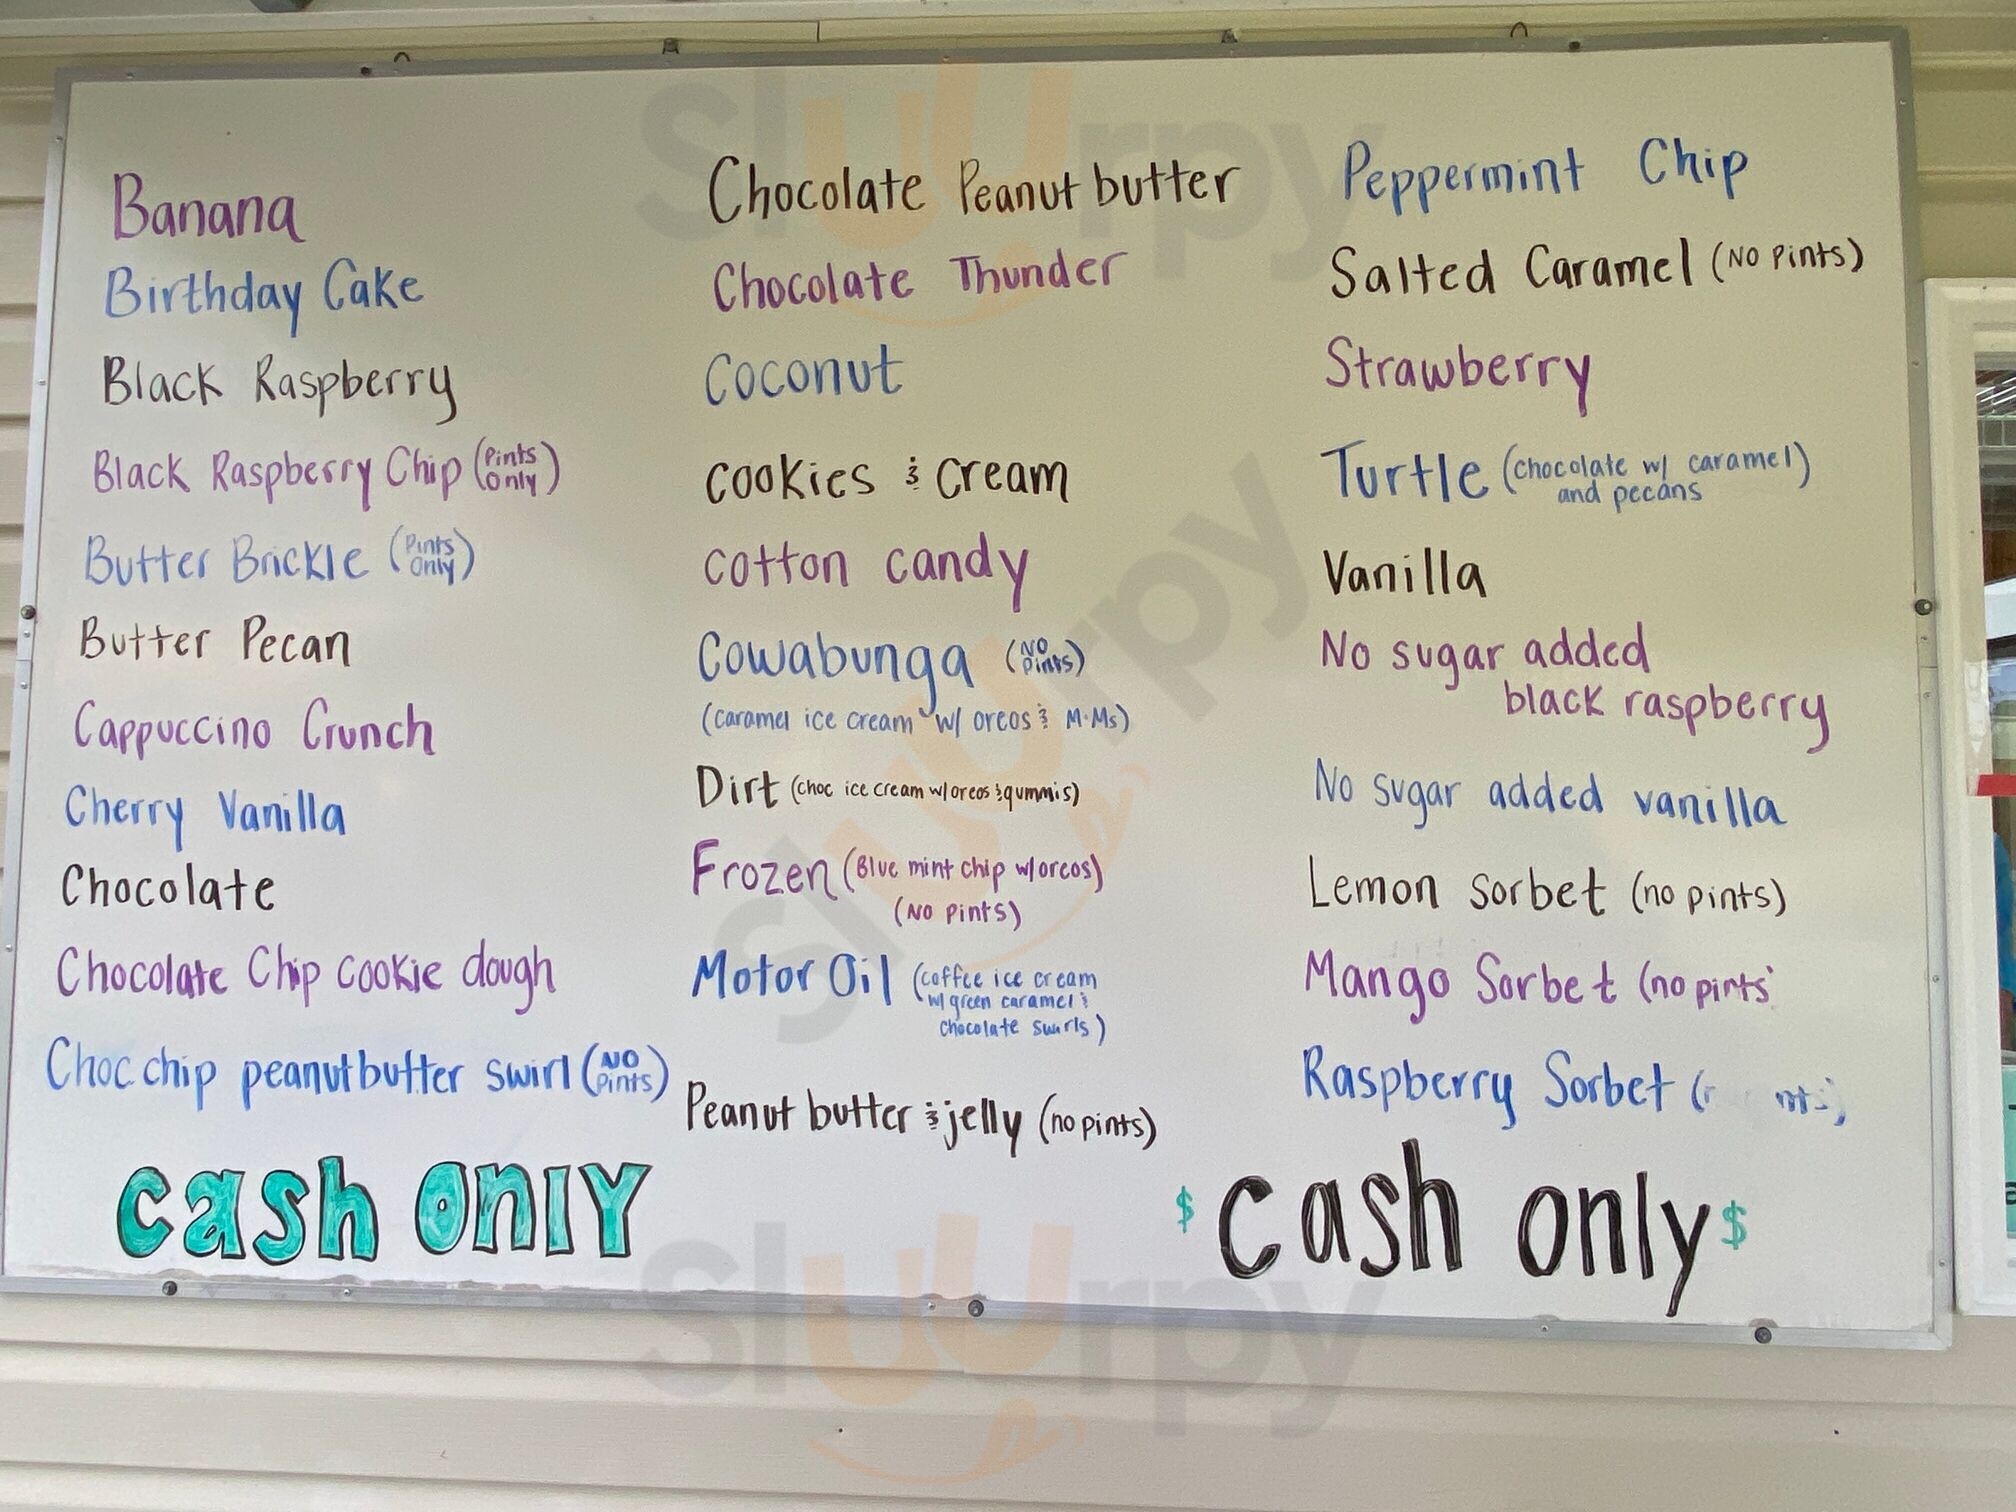 Banana
Birthday Cake
Black Raspberry
Black Raspberry Chip (Pints Only)
Butter Brickle (Pints Only)
Butter Pecan
Cappuccino Crunch
Cherry Vanilla
Chocolate
Chocolate Chip cookie dough
Choc chip peanut butter swirl (NO Pints)
cash only
Chocolate Peanut butter
Chocolate Thunder
Coconut
cookies & cream
cotton candy
Cowabunga (NO Pints)
(caramel ice cream w/ oreos & M·Ms)
Dirt (choc ice cream w/oreos & gummis)
Frozen (Blue mint chip w/oreos)
(NO pints)
Motor Oil (coffee ice cream
w/ green caramel &
chocolate swirls)
Peanut butter & jelly (no pints)
Peppermint Chip
Salted Caramel (NO Pints)
Strawberry
Turtle (chocolate w/ caramel)
and pecans
Vanilla
No sugar added
black raspberry
No sugar added vanilla
Lemon sorbet (no pints)
Mango Sorbet (no pints
Raspberry Sorbet
$ cash only $
Sluurpy
Sluurpy
Sluurpy